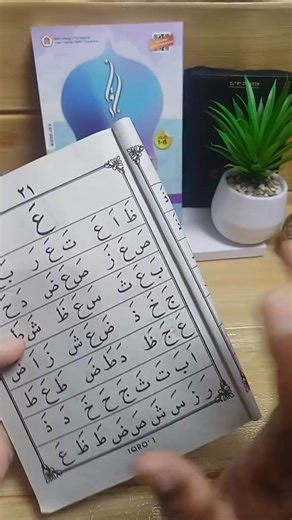 1-6
٢١
عَ
ظَ اَ عَ تَ عَ رَ
صَ عَ زَ صَ عَ ضَ دَ
بَ عَ ثَ سَ عَ ظَ
جَ خَ ذَ ضَ عَ شَ زَ اَ
عَ جَ ظَ دَ طَ ضَ طَ عَ طَ
اَ بَ تَ ثَ جَ حَ خَ دَ ذَ
رَ زَ سَ شَ صَ ضَ طَ ظَ عَ
IQRO' 1